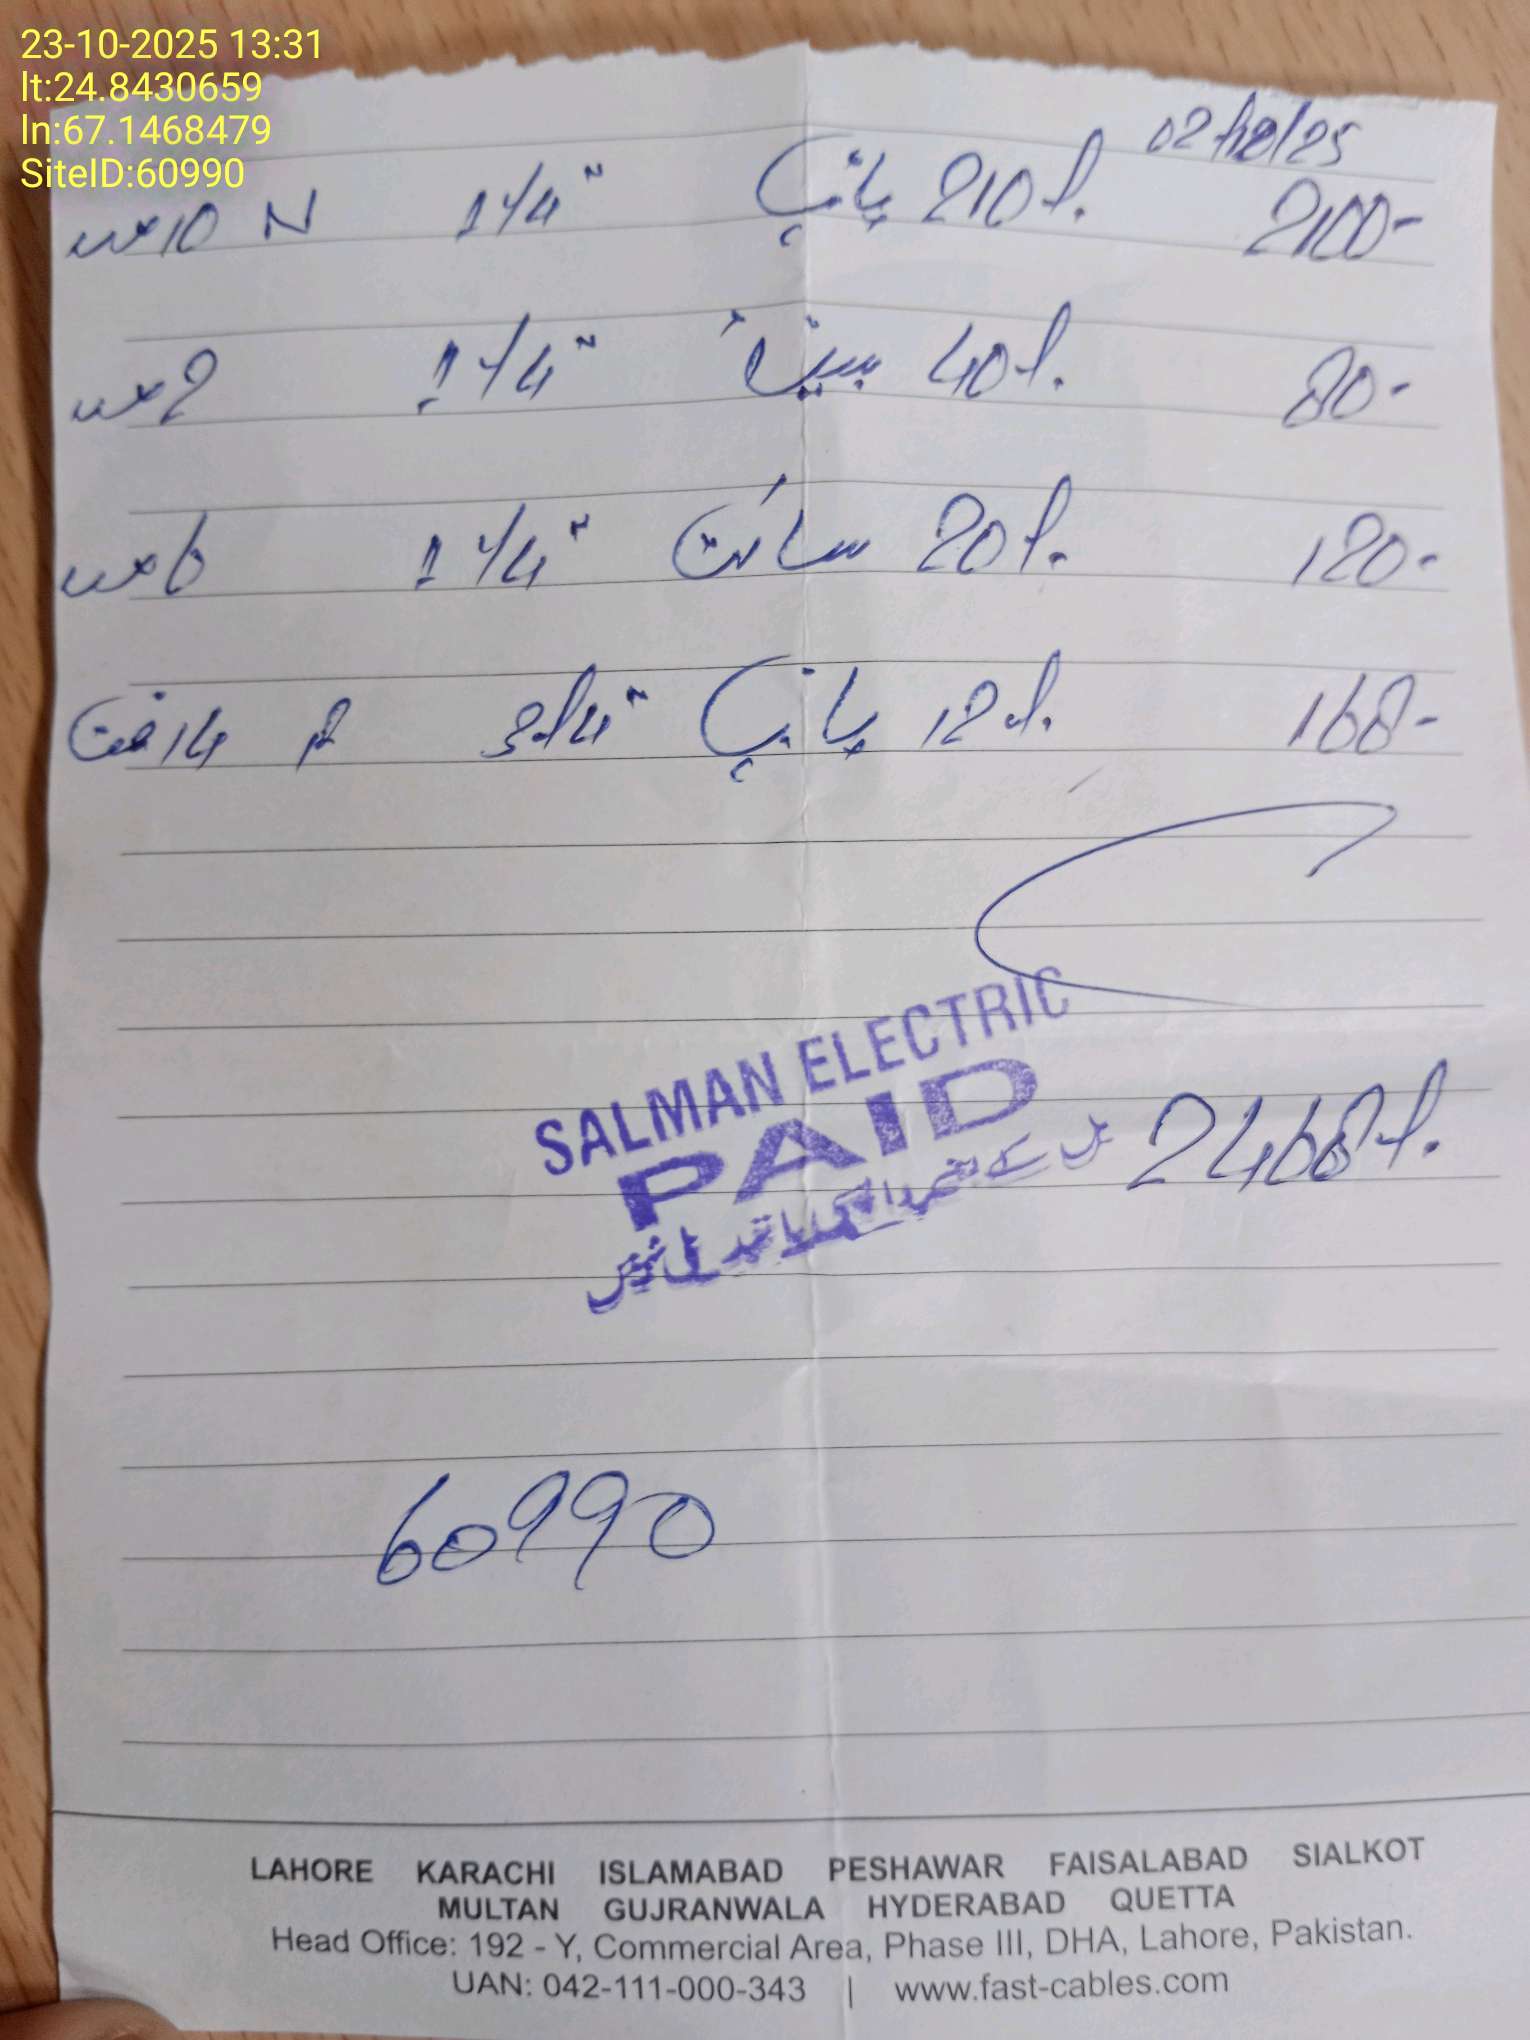 23-10-2025 13:31
lt:24.8430659
ln:67.1468479
SiteID:60990
02/12/25
10 عدد N 1 1/4" پائپ 210/. 2100-
2 عدد 1 1/4" بینڈ 40/. 80-
6 عدد 1 1/4" ساکٹ 20/. 120-
14 فٹ 3/4" پائپ 12/. 168-
SALMAN ELECTRIC
PAID
2468/.
60990
LAHORE KARACHI ISLAMABAD PESHAWAR FAISALABAD SIALKOT
MULTAN GUJRANWALA HYDERABAD QUETTA
Head Office: 192 - Y, Commercial Area, Phase III, DHA, Lahore, Pakistan.
UAN: 042-111-000-343 | www.fast-cables.com